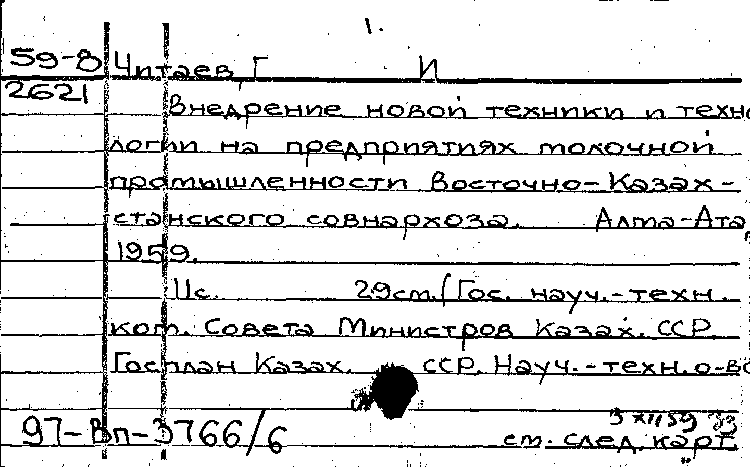 1.
59-8 Читаев, Г И
2621
Внедрение новой техники и техно
логии на предприятиях молочной
промышленности Восточно-Казах-
станского совнархоза. Алма-Ата,
1959.
11с. 29см. (Гос. науч.-техн.
ком. Совета Министров Казах. ССР.
Госплан Казах. ССР. Науч.-техн. о-во
97-Вп-3766/6
см. след. карт.